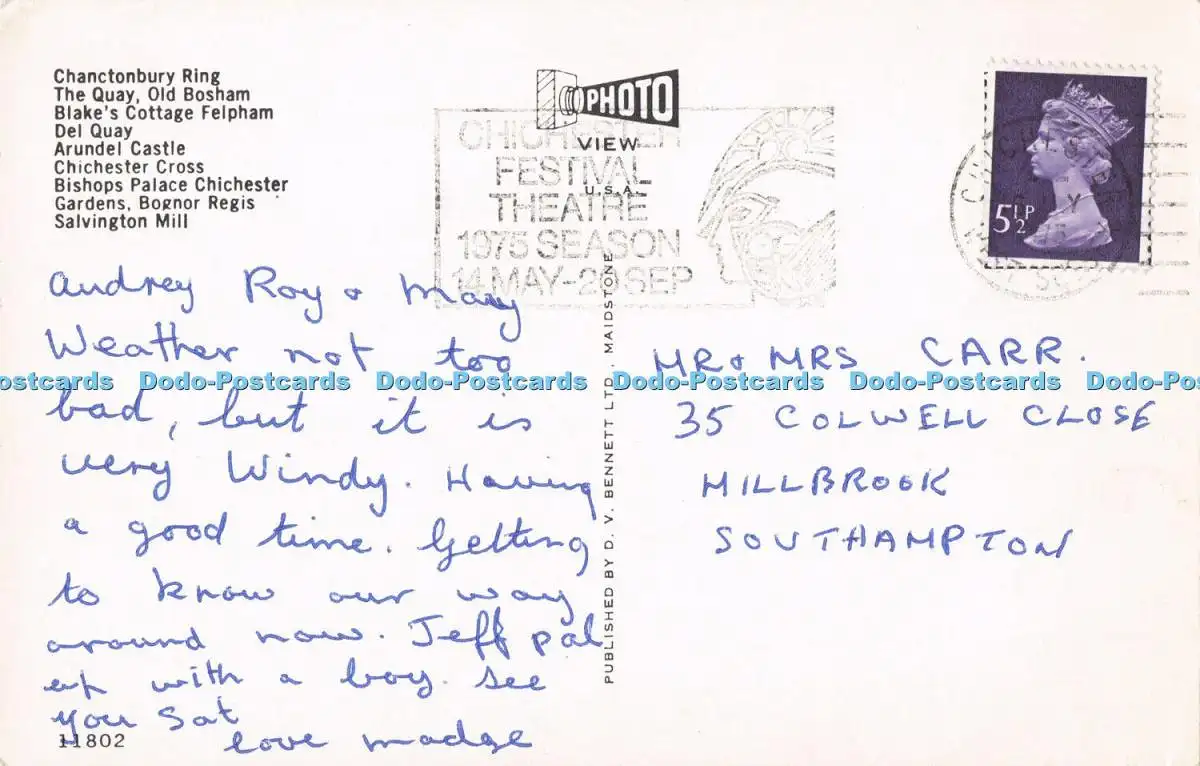 Chanctonbury Ring
The Quay, Old Bosham
Blake's Cottage Felpham
Del Quay
Arundel Castle
Chichester Cross
Bishops Palace Chichester
Gardens, Bognor Regis
Salvington Mill
PHOTO
VIEW
U.S.A.
CHICHESTER
FESTIVAL
THEATRE
1975 SEASON
14 MAY-20 SEP
5½P
Audrey Roy & Mary
Weather not too
bad, but it is
very Windy. Having
a good time. Getting
to know our way
around now. Jeff pal
up with a boy. See
you Sat
love madge
11802
PUBLISHED BY D. V. BENNETT LTD., MAIDSTONE
MR & MRS CARR.
35 COLWELL CLOSE
MILLBROOK
SOUTHAMPTON
Dodo-Postcards Dodo-Postcards Dodo-Postcards Dodo-Postcards Dodo-Postcards